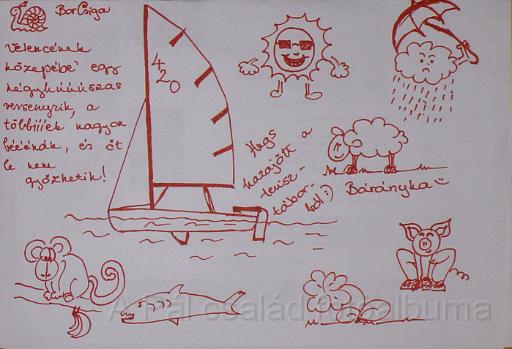 BorCsiga
Velencének
közepébe' egy
négyhúúúszas
versenyzik, a
többiiiek nagyon
bééénák, és őt
le nem
győzhetik!
420
Hugs
hazajött a
tenisz-
tábor-
ból :)
Bárányka
A Pál család fotóalbuma